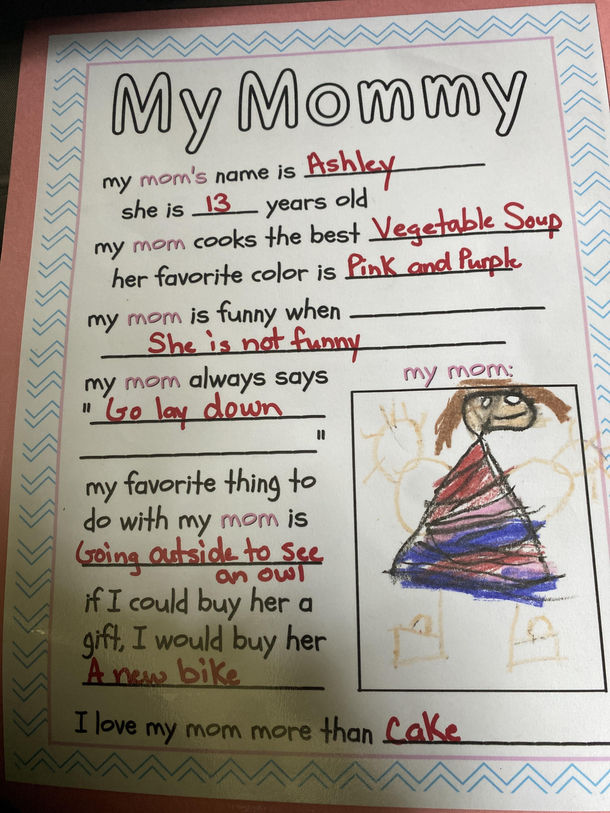 My Mommy
my mom's name is Ashley
she is 13 years old
my mom cooks the best Vegetable Soup
her favorite color is Pink and Purple
my mom is funny when
She is not funny
my mom always says
" Go lay down
"
my mom:
my favorite thing to
do with my mom is
Going outside to see
an owl
if I could buy her a
gift, I would buy her
A new bike
I love my mom more than cake